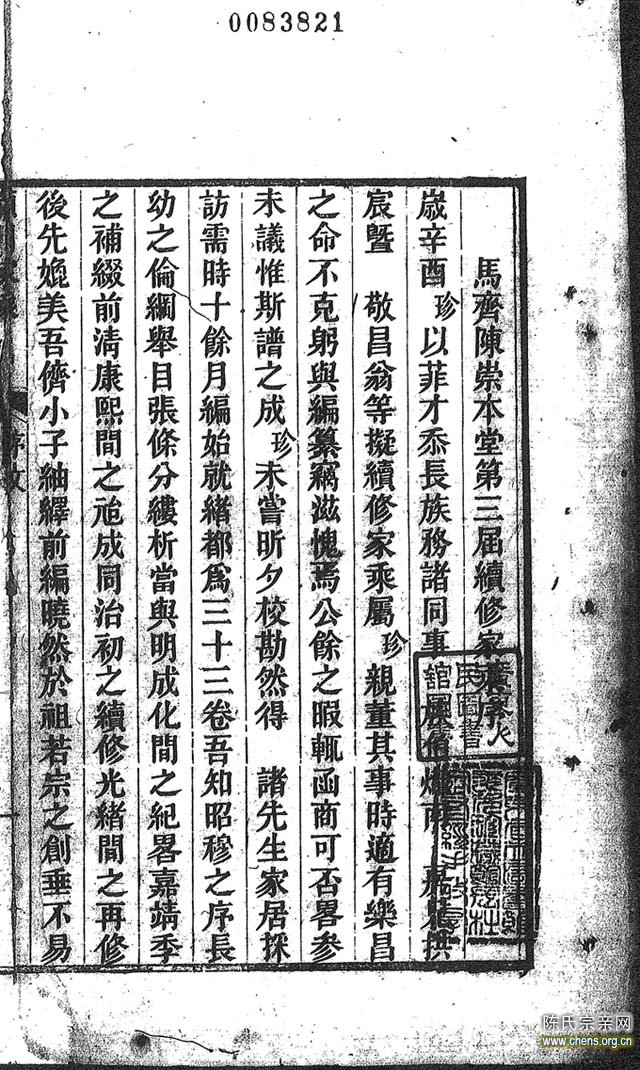 0083821
馬齊陳崇本堂第三届續修家乘序
歲辛酉珍以菲才忝長族務諸同事族伯
宸暨 敬昌翁等擬續修家乘屬珍親董其事時適有樂昌
之命不克躬與編纂竊滋愧焉公餘之暇輒函商可否畧參
末議惟斯譜之成珍未嘗昕夕校勘然得 諸先生家居採
訪需時十餘月編始就緒都爲三十三卷吾知昭穆之序長
幼之倫綱舉目張條分縷析當與明成化間之紀畧嘉靖季
之補綴前清康熙間之祂成同治初之續修光緒間之再修
後先媲美吾儕小子紬繹前編曉然於祖若宗之創垂不易
序文
陈氏宗亲网
www.chens.org.cn